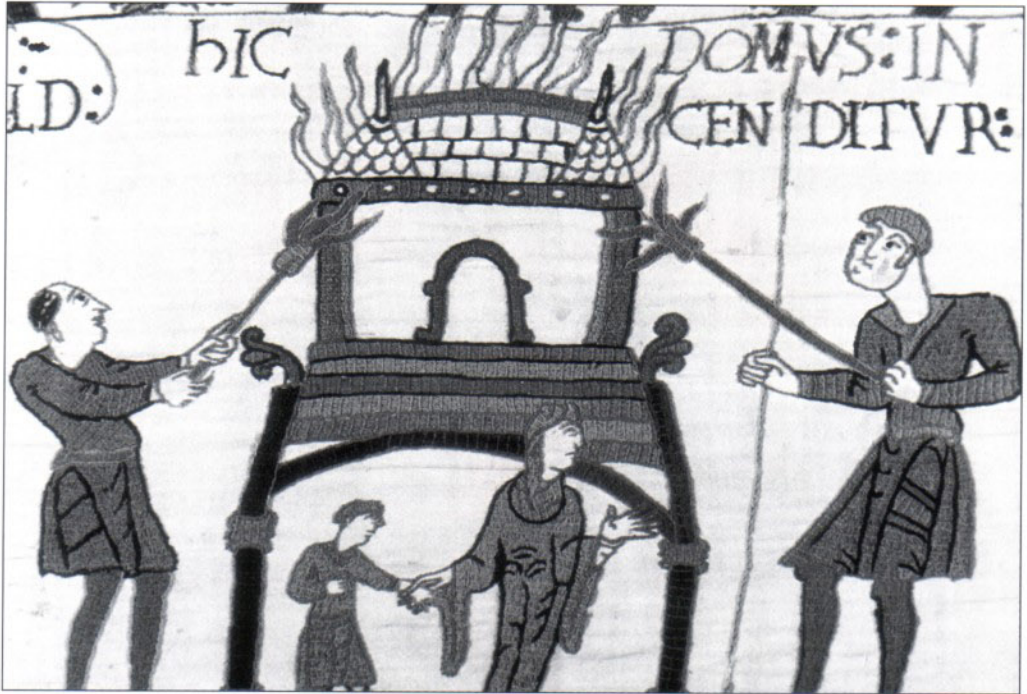 hIC DOMVS: IN
LD: CENDITVR: